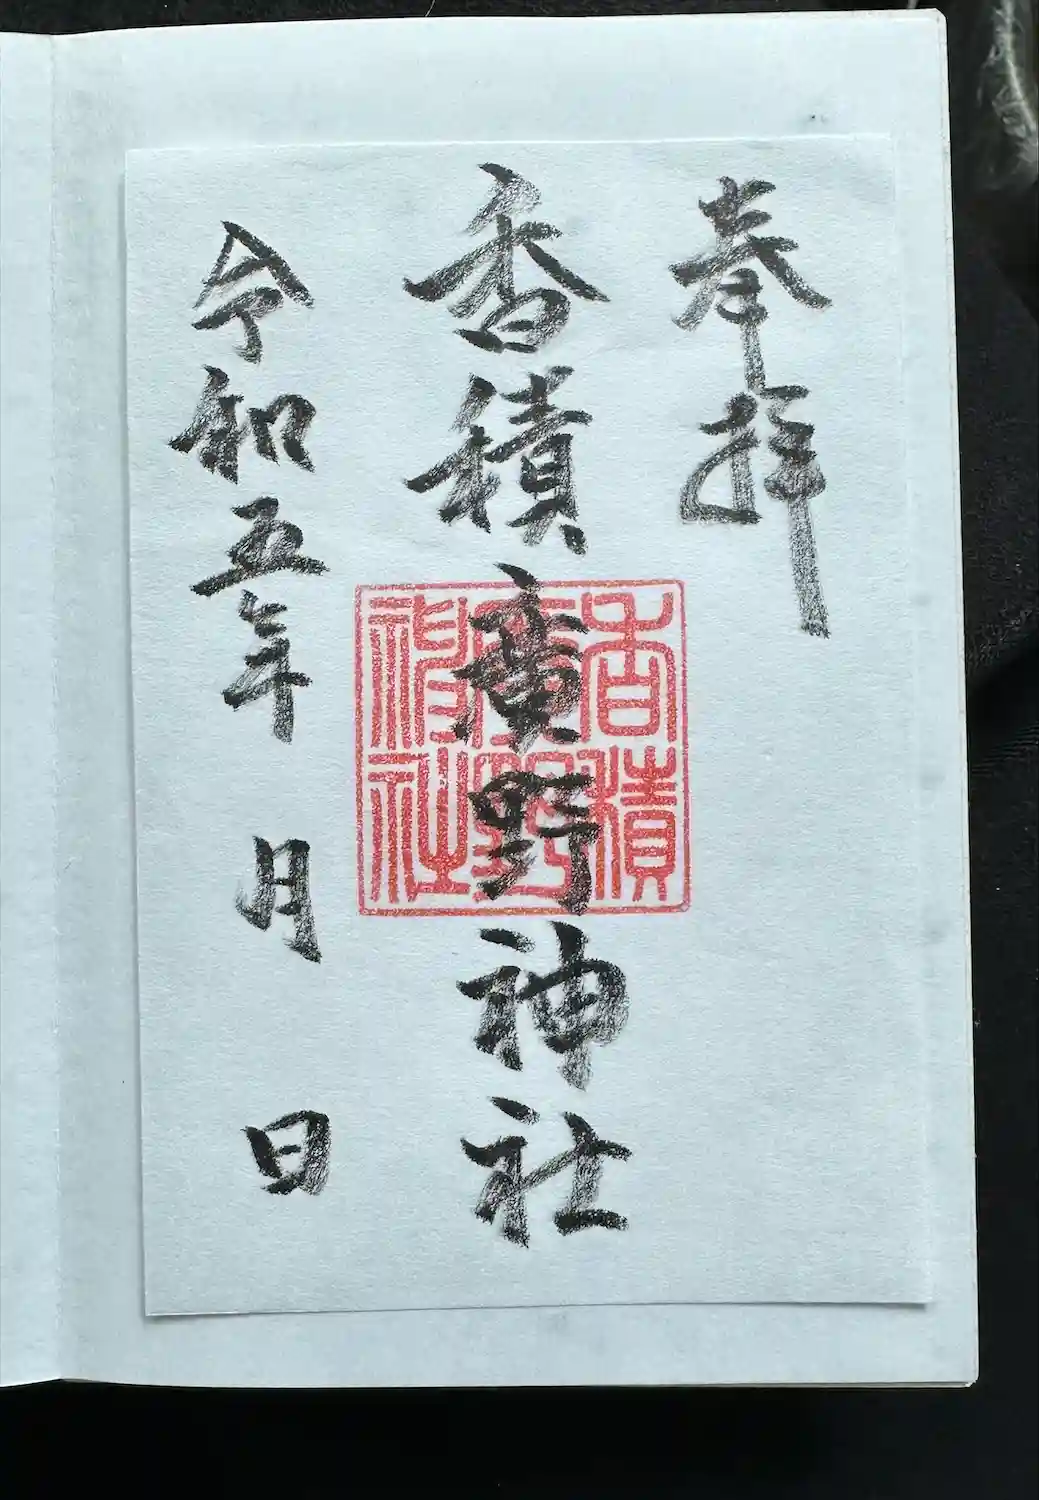 奉拝
香積廣野神社
香積廣野神社
令和五年 月 日